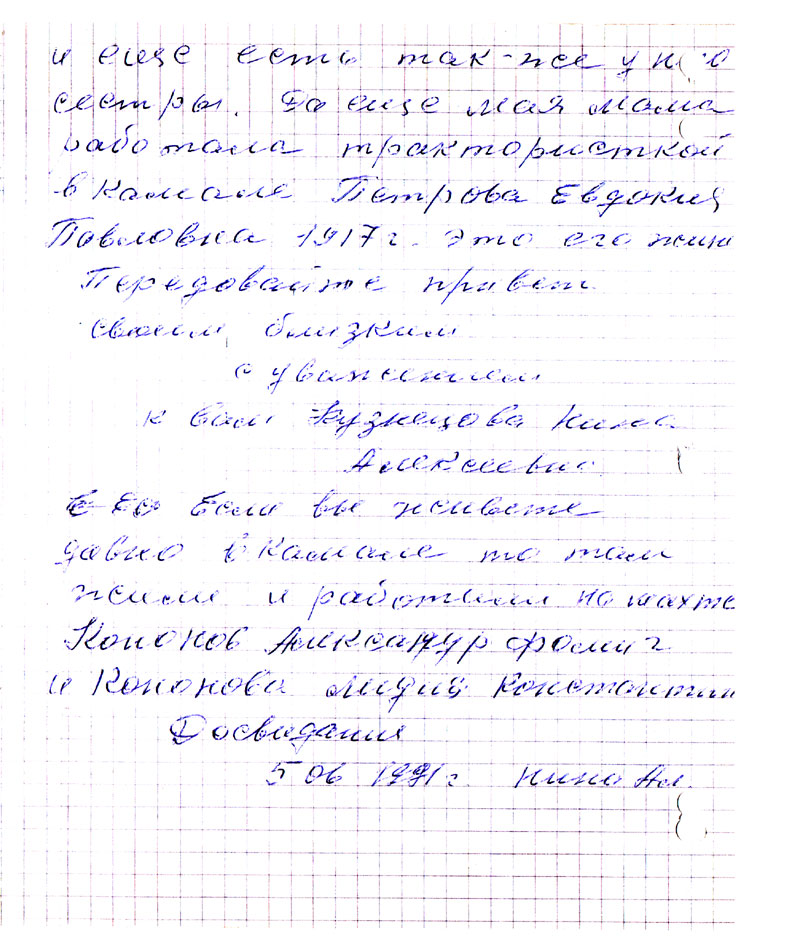 и еще есть так-же у н
сестры. Да еще мая мама
работала трактористкой
в Катале Петрова Евдокия
Павловна 1917 г. это его жин
Передовайте привет
своим близким
с уважением
к вам Кузнецова Нина
Алексеевна
Если вы живете
давно в Катале то там
жили и работали на шахте
Кононов Александр Фомич
и Кононова Лидия Константин
Досвидания
5 06 1991 г. Нина Ал.